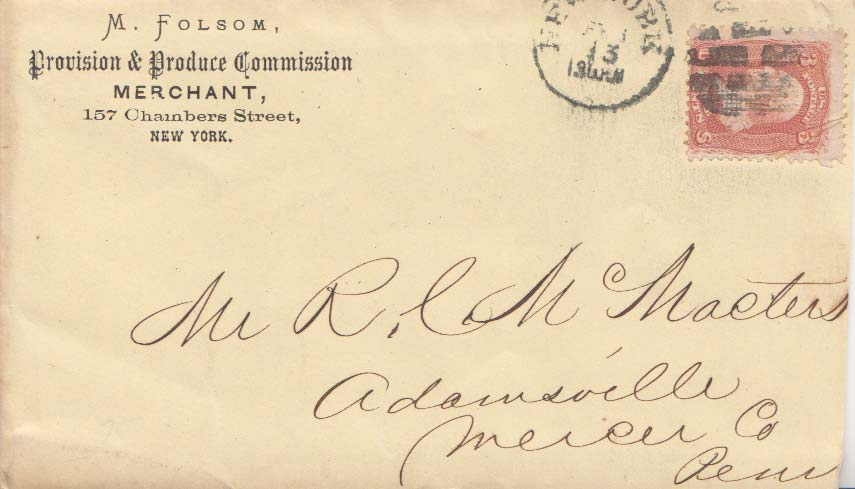 M. FOLSOM,
Provision & Produce Commission
MERCHANT,
157 Chambers Street,
NEW YORK.
NEW YORK
13
Mr R. C. McMasters
Adamsville
Mercer Co
Penn